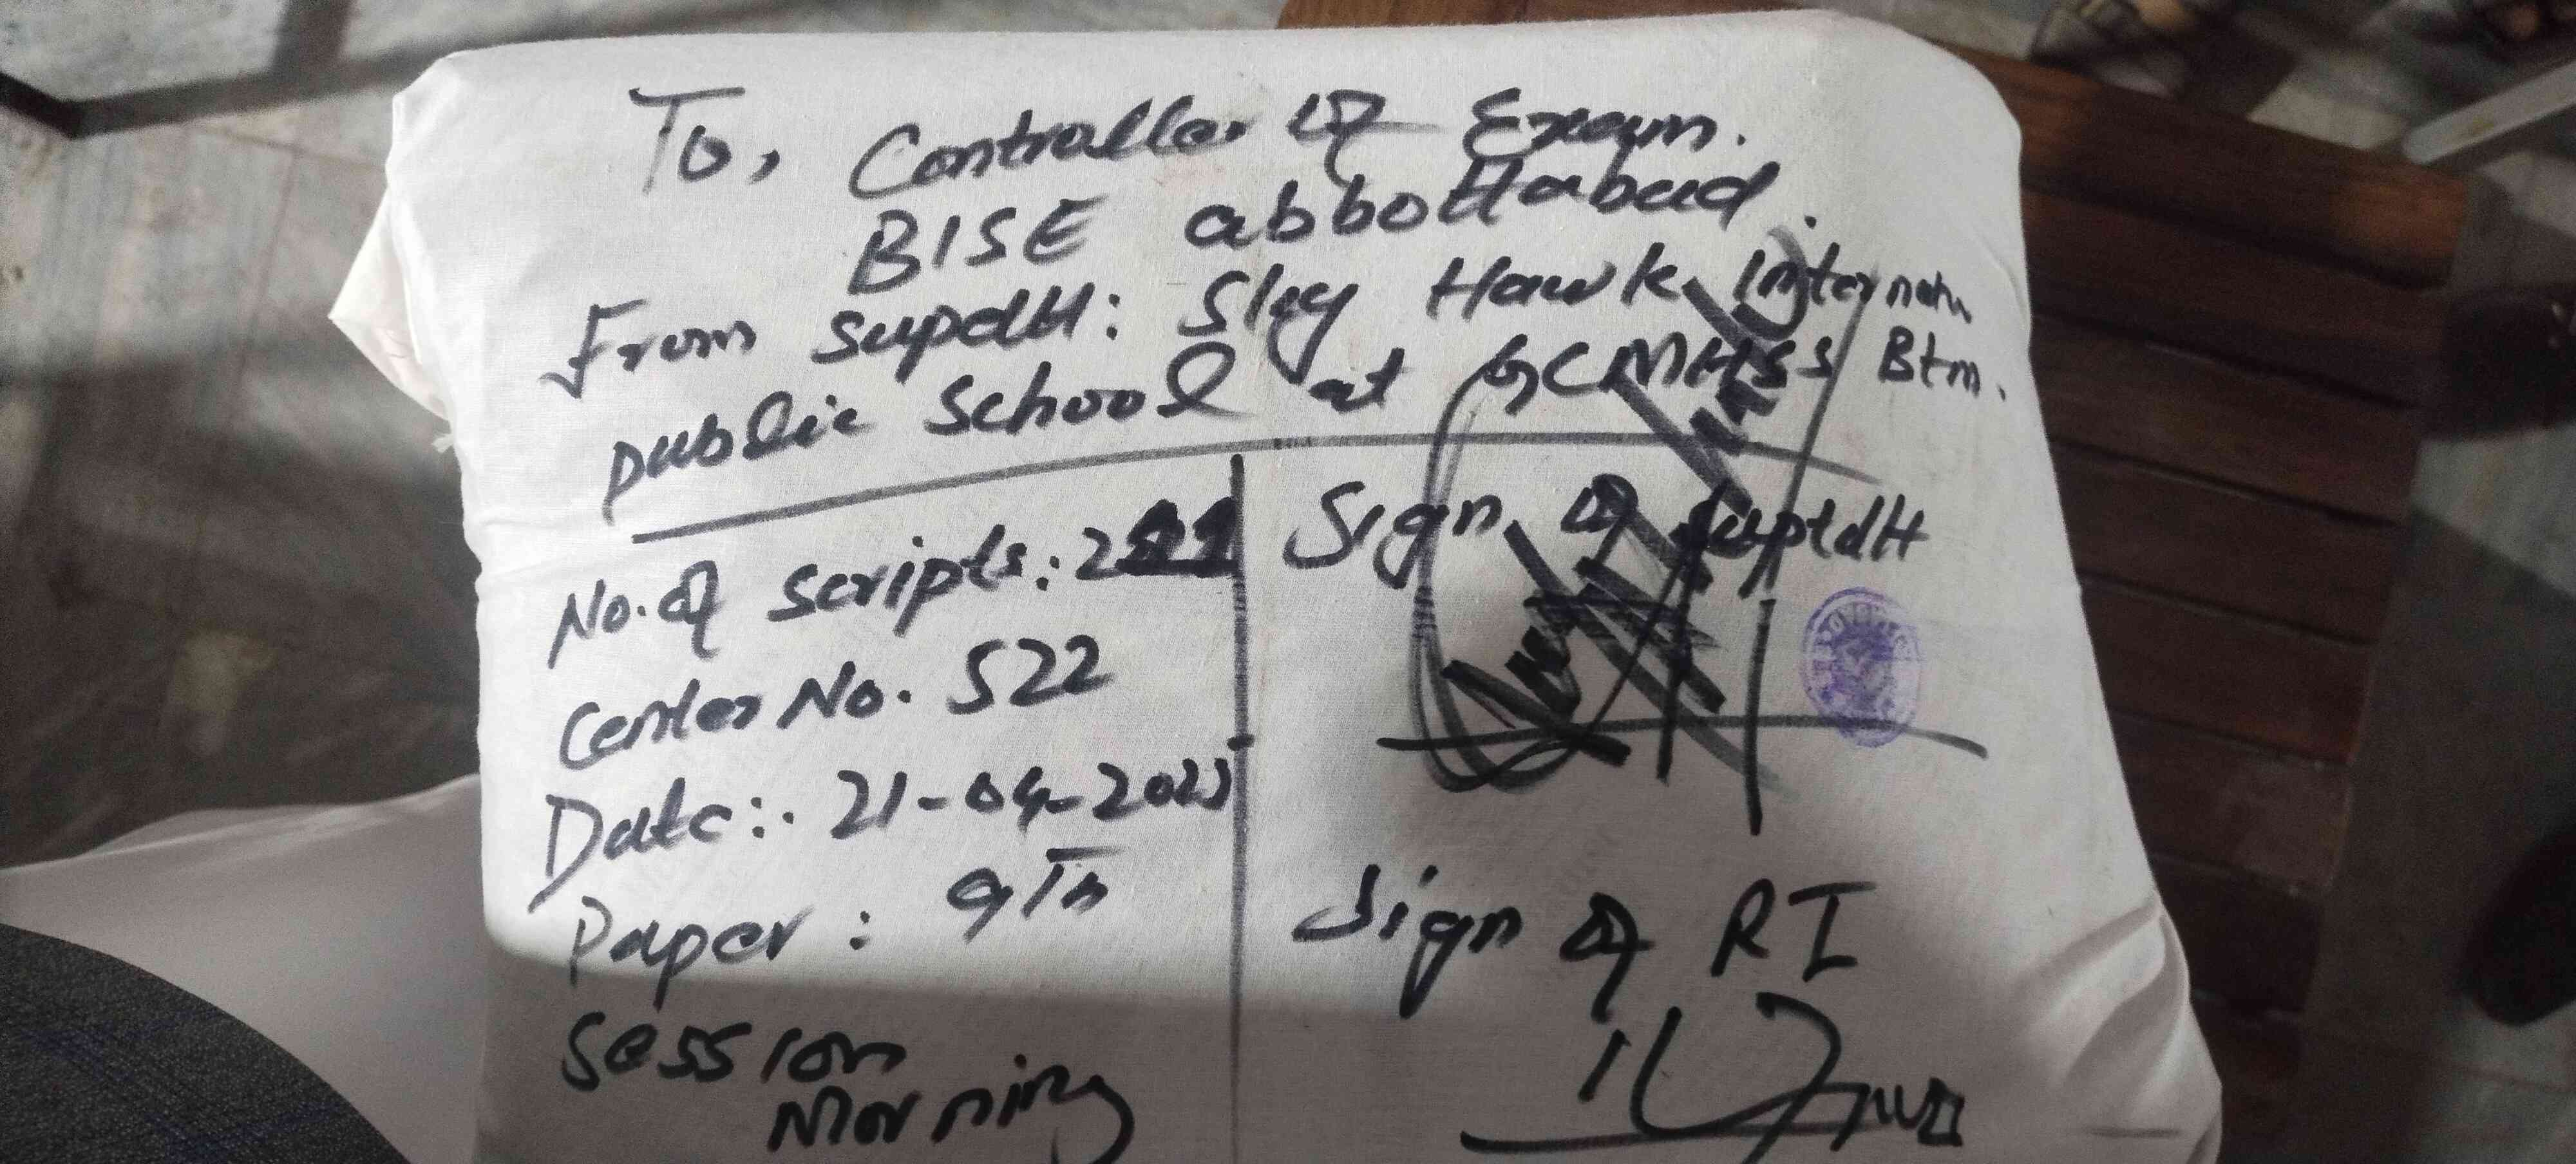 To, Controller of Exam.
BISE abbottabad.
From supdtt: Sky Hawk Internatn
public school at GCMHSS Btm.
No. of scripts:
Center No. 522
Date: 21-04-2025
Paper: 9Th
Session
Morning
Sign of Suptdtt
Sign of RI